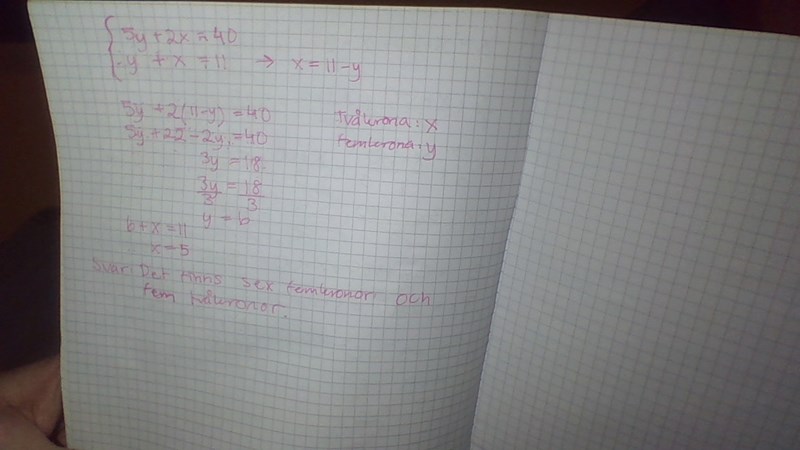 5y + 2x = 40
y + x = 11 → x = 11 - y
5y + 2(11-y) = 40 Tvåkrona: x
5y + 22 - 2y = 40 femkrona: y
3y = 18
3y/3 = 18/3
y = 6
6 + x = 11
x = 5
Svar: Det finns sex femkronor och
fem tvåkronor.